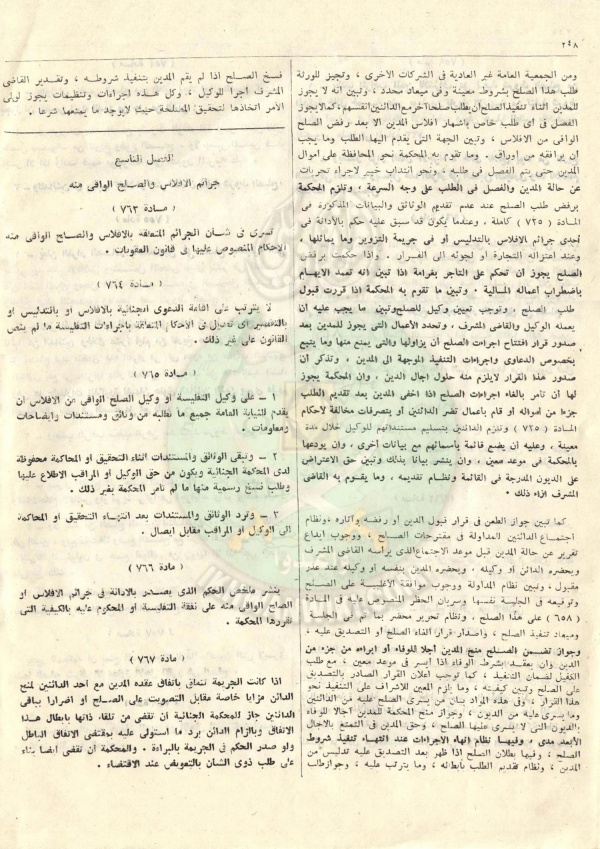 ٢٤٨
ومن الجمعية العامة غير العادية في الشركات الأخرى ، وتجيز للورثة
طلب هذا الصلح بشروط معينة وفى ميعاد محدد ، وتبين انه لا يجوز
للمدين اثناء تنفيذ الصلح ان يطلب صلحا آخر مع الدائنين انفسهم ، كما لايجوز
الفصل فى أى طلب خاص باشهار افلاس المدين الا بعد رفض الصلح
الواقى من الافلاس ، وتبين الجهة التى يقدم اليها الطلب وما يجب
ان يرافقه من اوراق . وما تقوم به المحكمة نحو المحافظة على اموال
المدين حتى يتم الفصل فى طلبه ، ونحو انتداب خبير لاجراء تحريات
عن حالة المدين والفصل فى الطلب على وجه السرعة ، وتلزم المحكمة
برفض طلب الصلح عند عدم تقديم الوثائق والبيانات المذكورة فى
المادة ( ٧٢٥ ) كاملة ، وعندما يكون قد سبق عليه حكم بالأدانة فى
أحدى جرائم الافلاس بالتدليس أو فى جريمة التزوير وما يماثلها ،
وعند اعتزاله التجارة او لجوئه الى الفرار . واذا حكمت برفض
الصلح يجوز أن تحكم على التاجر بغرامة اذا تبين انه تعمد الايهام
باضطراب اعماله المالية . وتبين ما تقوم به المحكمة اذا قررت قبول
طلب الصلح ، وتوجب تعيين وكيل للصلح وتبين ما يجب عليه ان
يعمله الوكيل والقاضى المشرف ، وتحدد الأعمال التى يجوز للمدين بعد
صدور قرار افتتاح اجراءات الصلح أن يزاولها والتى يمنع منها وما يتبع
بخصوص الدعاوى واجراءات التنفيذ الموجهة الى المدين ، وتذكر ان
صدور هذا القرار لايلزم منه حلول اجال الدين ، وان المحكمة يجوز
لها أن تأمر بالغاء اجراءات الصلح اذا اخفى المدين بعد تقديم الطلب
جزءا من امواله او قام باعمال تضر الدائنين أو بتصرفات مخالفة لاحكام
المادة ( ٧٣٥ ) وتلزم الدائنين بتسليم مستنداتهم للوكيل خلال مدة
معينة ، وعليه ان يضع قائمة بأسمائهم مع بيانات أخرى ، وان يودعها
بالمحكمة فى موعد معين ، وان ينشر بيانا بذلك وتبين حق الاعتراض
على الديون المدرجة فى القائمة ونظام تقديمه ، وما يقوم به القاضى
المشرف ازاء ذلك .
كما تبين جواز الطعن فى قرار قبول الدين او رفضه وآثاره ، ونظام
اجتماع الدائنين للمداولة فى مقترحات الصلح ، ووجوب ايداع
تقرير عن حالة المدين قبل موعد الاجتماع الذى يرأسه القاضى المشرف
ويحضره الدائن أو وكيله ، ويحضره المدين بنفسه أو وكيله عند عذر
مقبول ، وتبين نظام المداولة ووجوب موافقة الاغلبية على الصلح
وتوقيعه فى الجلسة نفسها وسريان الحظر المنصوص عليه فى المادة
( ٦٥٨ ) على هذا الصلح ، ونظام تحرير محضر بما تم فى الجلسة
وميعاد تنفيذ الصلح ، واصدار قرار الغاء الصلح أو التصديق عليه ،
وجواز تضمن الصلح منح المدين اجلا للوفاء أو ابراءه من جزء من
الدين وان يعقد بشرط الوفاء اذا ايسر فى موعد معين ، مع طلب
الكفيل لضمان التنفيذ ، كما توجب اعلان القرار الصادر بالتصديق
على الصلح وتبين كيفيته ، وما يلزم المعين للاشراف على التنفيذ نحو
هذا القرار ، وفى هذه المواد بيان من يسرى الصلح عليه من الدائنين
وما يسرى عليه من الديون ، وجواز منح المحكمة للمدين آجالا للوفاء
بالديون التى لا يسرى عليها الصلح ، وحق المدين فى التمتع بالاجال
الأبعد مدى ، وفيهـا نظام انهاء الاجراءات عند انتهـاء تنفيذ شروط
الصلح ، وفيها بطلان الصلح اذا ظهر بعد التصديق عليه تدليس من
المدين ، ونظام تقديم الطلب بابطاله ، وما يترتب عليه ، وجواز طلب
فسخ الصلح اذا لم يقم المدين بتنفيذ شروطه ، وتقدير القاضى
المشرف أجرا للوكيل ، وكل هذه اجراءات وتنظيمات يجوز لولى
الأمر اتخاذها لتحقيق المصلحة حيث لايوجد ما يمنعها شرعا .
الفصل التاسع
جرائم الافلاس والصلح الواقى منه
( مـادة ٧٦٣ )
تسرى فى شـأن الجرائم المتعلقة بالافلاس والصلح الواقى منه
الاحكام المنصوص عليها فى قانون العقوبات .
( مـادة ٧٦٤ )
لا يترتب على اقامة الدعوى الجنائية بالافلاس او بالتدليس أو
بالتقصير اى تعديل فى الاحكام المتعلقة باجراءات التفليسة ما لم ينص
القانون على غير ذلك .
( مادة ٧٦٥ )
١ – على وكيل التفليسة أو وكيل الصلح الواقى من الافلاس أن
يقدم للنيابة العامة جميع ما تطلبه من وثائق ومستندات وايضاحات
ومعلومات .
٢ – وتبقى الوثائق والمستندات اثناء التحقيق أو المحاكمة محفوظة
لدى المحكمة الجنائية ويكون من حق الوكيل أو المراقب الاطلاع عليها
وطلب نسخ رسمية منها ما لم تأمر المحكمة بغير ذلك .
٣ – وترد الوثائق والمستندات بعد انتهـاء التحقيق أو المحاكمة
الى الوكيل أو المراقب مقابل ايصال .
( مادة ٧٦٦ )
ينشر ملخص الحكم الذى يصـدر بالادانة فى جرائم الافلاس أو
الصلح الواقى منه على نفقة التفليسة أو المحكوم عليه بالكيفية التى
تقررها المحكمة .
( مادة ٧٦٧ )
اذا كانت الجريمة تتعلق باتفاق عقده المدين مع أحد الدائنين لمنح
الدائن مزايا خاصة مقابل التصويت على الصلح أو اضرارا بباقى
الدائنين جاز للمحكمة الجنائية أن تقضى من تلقاء ذاتها بابطال هذا
الاتفاق وبالزام الدائن برد ما استولى عليه بمقتضى الاتفاق الباطل
ولو صدر الحكم فى الجريمة بالبراءة . وللمحكمة أن تقضى أيضا بناء
على طلب ذوى الشأن بالتعويض عند الاقتضاء .